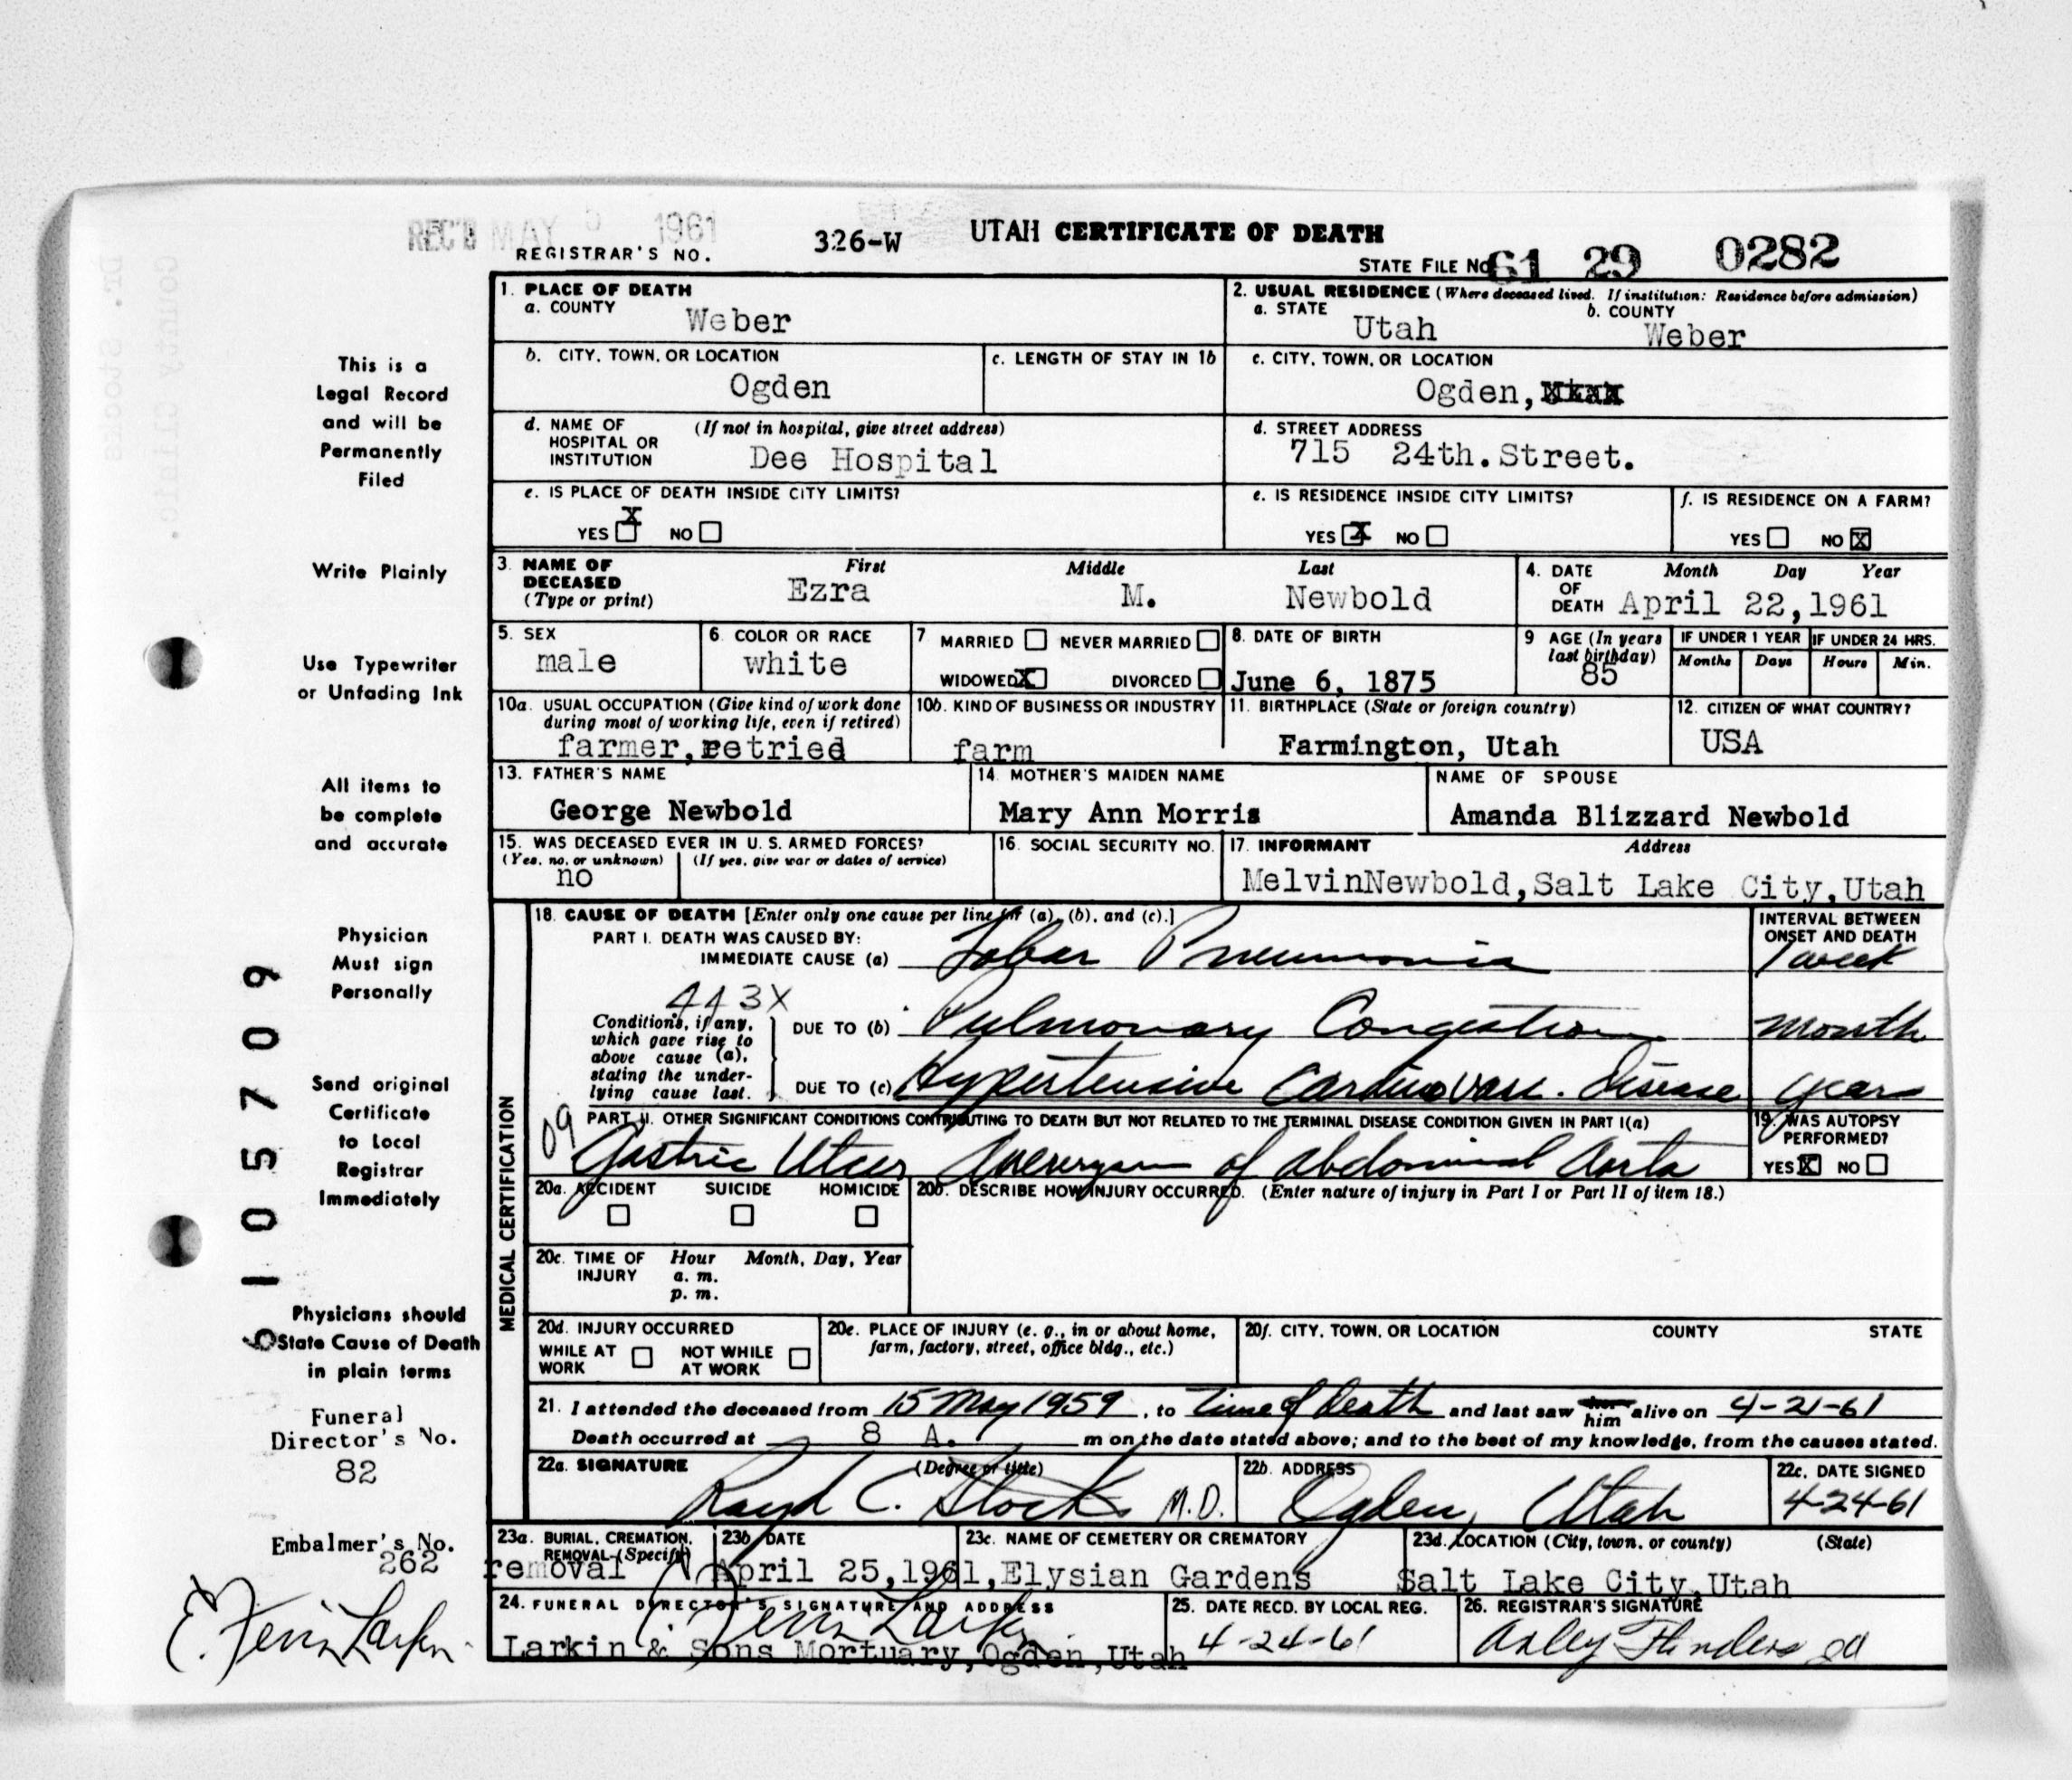 REC'D MAY 1961
REGISTRAR'S NO. 326-W UTAH CERTIFICATE OF DEATH
STATE FILE NO. 61 29 0282
1. PLACE OF DEATH
a. COUNTY Weber
2. USUAL RESIDENCE (Where deceased lived. If institution: Residence before admission)
a. STATE Utah b. COUNTY Weber
b. CITY, TOWN, OR LOCATION Ogden
c. LENGTH OF STAY IN 1b
c. CITY, TOWN, OR LOCATION Ogden,
d. NAME OF HOSPITAL OR INSTITUTION (If not in hospital, give street address) Dee Hospital
d. STREET ADDRESS 715 24th. Street.
e. IS PLACE OF DEATH INSIDE CITY LIMITS?
YES X NO
e. IS RESIDENCE INSIDE CITY LIMITS?
YES X NO
f. IS RESIDENCE ON A FARM?
YES NO X
3. NAME OF DECEASED (Type or print) First Ezra Middle M. Last Newbold
4. DATE OF DEATH Month Day Year April 22, 1961
5. SEX male
6. COLOR OR RACE white
7 MARRIED NEVER MARRIED
WIDOWED X DIVORCED
8. DATE OF BIRTH June 6, 1875
9 AGE (In years last birthday) 85
IF UNDER 1 YEAR Months Days
IF UNDER 24 HRS. Hours Min.
10a. USUAL OCCUPATION (Give kind of work done during most of working life, even if retired) farmer, retried
10b. KIND OF BUSINESS OR INDUSTRY farm
11. BIRTHPLACE (State or foreign country) Farmington, Utah
12. CITIZEN OF WHAT COUNTRY? USA
13. FATHER'S NAME George Newbold
14. MOTHER'S MAIDEN NAME Mary Ann Morris
NAME OF SPOUSE Amanda Blizzard Newbold
15. WAS DECEASED EVER IN U. S. ARMED FORCES?
(Yes, no, or unknown) (If yes, give war or dates of service)
no
16. SOCIAL SECURITY NO.
17. INFORMANT Address
MelvinNewbold, Salt Lake City, Utah
MEDICAL CERTIFICATION
18. CAUSE OF DEATH [Enter only one cause per line for (a), (b), and (c).]
INTERVAL BETWEEN ONSET AND DEATH
PART I. DEATH WAS CAUSED BY:
IMMEDIATE CAUSE (a) Lobar Pneumonia 1 week
443X
Conditions, if any, which gave rise to above cause (a), stating the underlying cause last.
DUE TO (b) Pulmonary Congestion month
DUE TO (c) Hypertensive Cardiovasc. disease years
09
PART II. OTHER SIGNIFICANT CONDITIONS CONTRIBUTING TO DEATH BUT NOT RELATED TO THE TERMINAL DISEASE CONDITION GIVEN IN PART I(a)
Gastric Ulcers Aneurysm of abdominal Aorta
19. WAS AUTOPSY PERFORMED?
YES X NO
20a. ACCIDENT SUICIDE HOMICIDE
20b. DESCRIBE HOW INJURY OCCURRED. (Enter nature of injury in Part I or Part II of item 18.)
20c. TIME OF INJURY Hour a. m. p. m. Month, Day, Year
20d. INJURY OCCURRED
WHILE AT WORK NOT WHILE AT WORK
20e. PLACE OF INJURY (e. g., in or about home, farm, factory, street, office bldg., etc.)
20f. CITY, TOWN, OR LOCATION COUNTY STATE
21. I attended the deceased from 15 May 1959, to time of death and last saw him alive on 4-21-61
Death occurred at 8 A. m on the date stated above; and to the best of my knowledge, from the causes stated.
22a. SIGNATURE (Degree or title) C. Stocks M.D.
22b. ADDRESS Ogden, Utah
22c. DATE SIGNED 4-24-61
23a. BURIAL, CREMATION, REMOVAL (Specify) removal
23b. DATE April 25, 1961,
23c. NAME OF CEMETERY OR CREMATORY Elysian Gardens
23d. LOCATION (City, town, or county) (State) Salt Lake City, Utah
24. FUNERAL DIRECTOR'S SIGNATURE AND ADDRESS
Larkin & Sons Mortuary, Ogden, Utah
25. DATE RECD. BY LOCAL REG. 4-24-61
26. REGISTRAR'S SIGNATURE
This is a
Legal Record
and will be
Permanently
Filed
Write Plainly
Use Typewriter
or Unfading Ink
All items to
be complete
and accurate
Physician
Must sign
Personally
Send original
Certificate
to Local
Registrar
Immediately
Physicians should
State Cause of Death
in plain terms
Funeral
Director's No.
82
Embalmer's No.
262
E. Ferrin Larkin
6105709
Dr. Stocks
County Clinic.